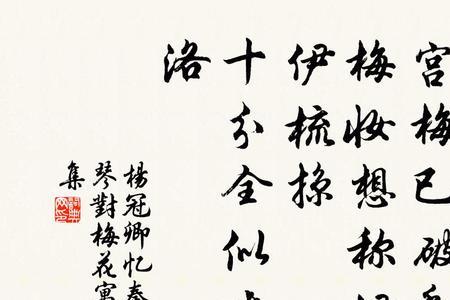 宮梅已破
梅妝想称
伊梳掠
十分全似
洛
楊冠卿忆秦
琴對梅花寓
集